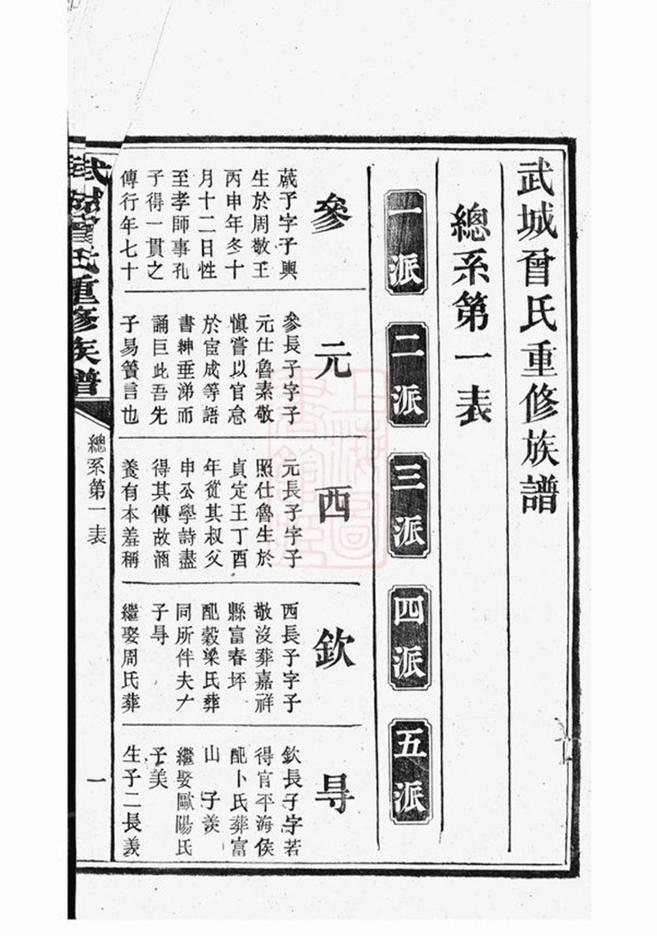 武城曾氏重修族譜
總系第一表
一派
二派
三派
四派
五派
參
蒧子字子輿
生於周敬王
丙申年冬十
月十二日性
至孝師事孔
子得一貫之
傳行年七十
元
參長子字子
元仕魯素敬
慎嘗以官怠
於宦成等語
書紳垂涕而
誦曰此吾先
子易簀言也
西
元長子字子
照仕魯生於
貞定王丁酉
年從其叔父
申公學詩盡
得其傳故涵
養有本羞稱
欽
西長子字子
敬沒葬嘉祥
縣富春坪
配穀梁氏葬
同所伴夫左
子㝷
繼娶周氏葬
㝷
欽長子字若
得官平海侯
配卜氏葬富
山 子羨
繼娶歐陽氏
子美
生子二長羨
武城曾氏重修族譜
總系第一表
一